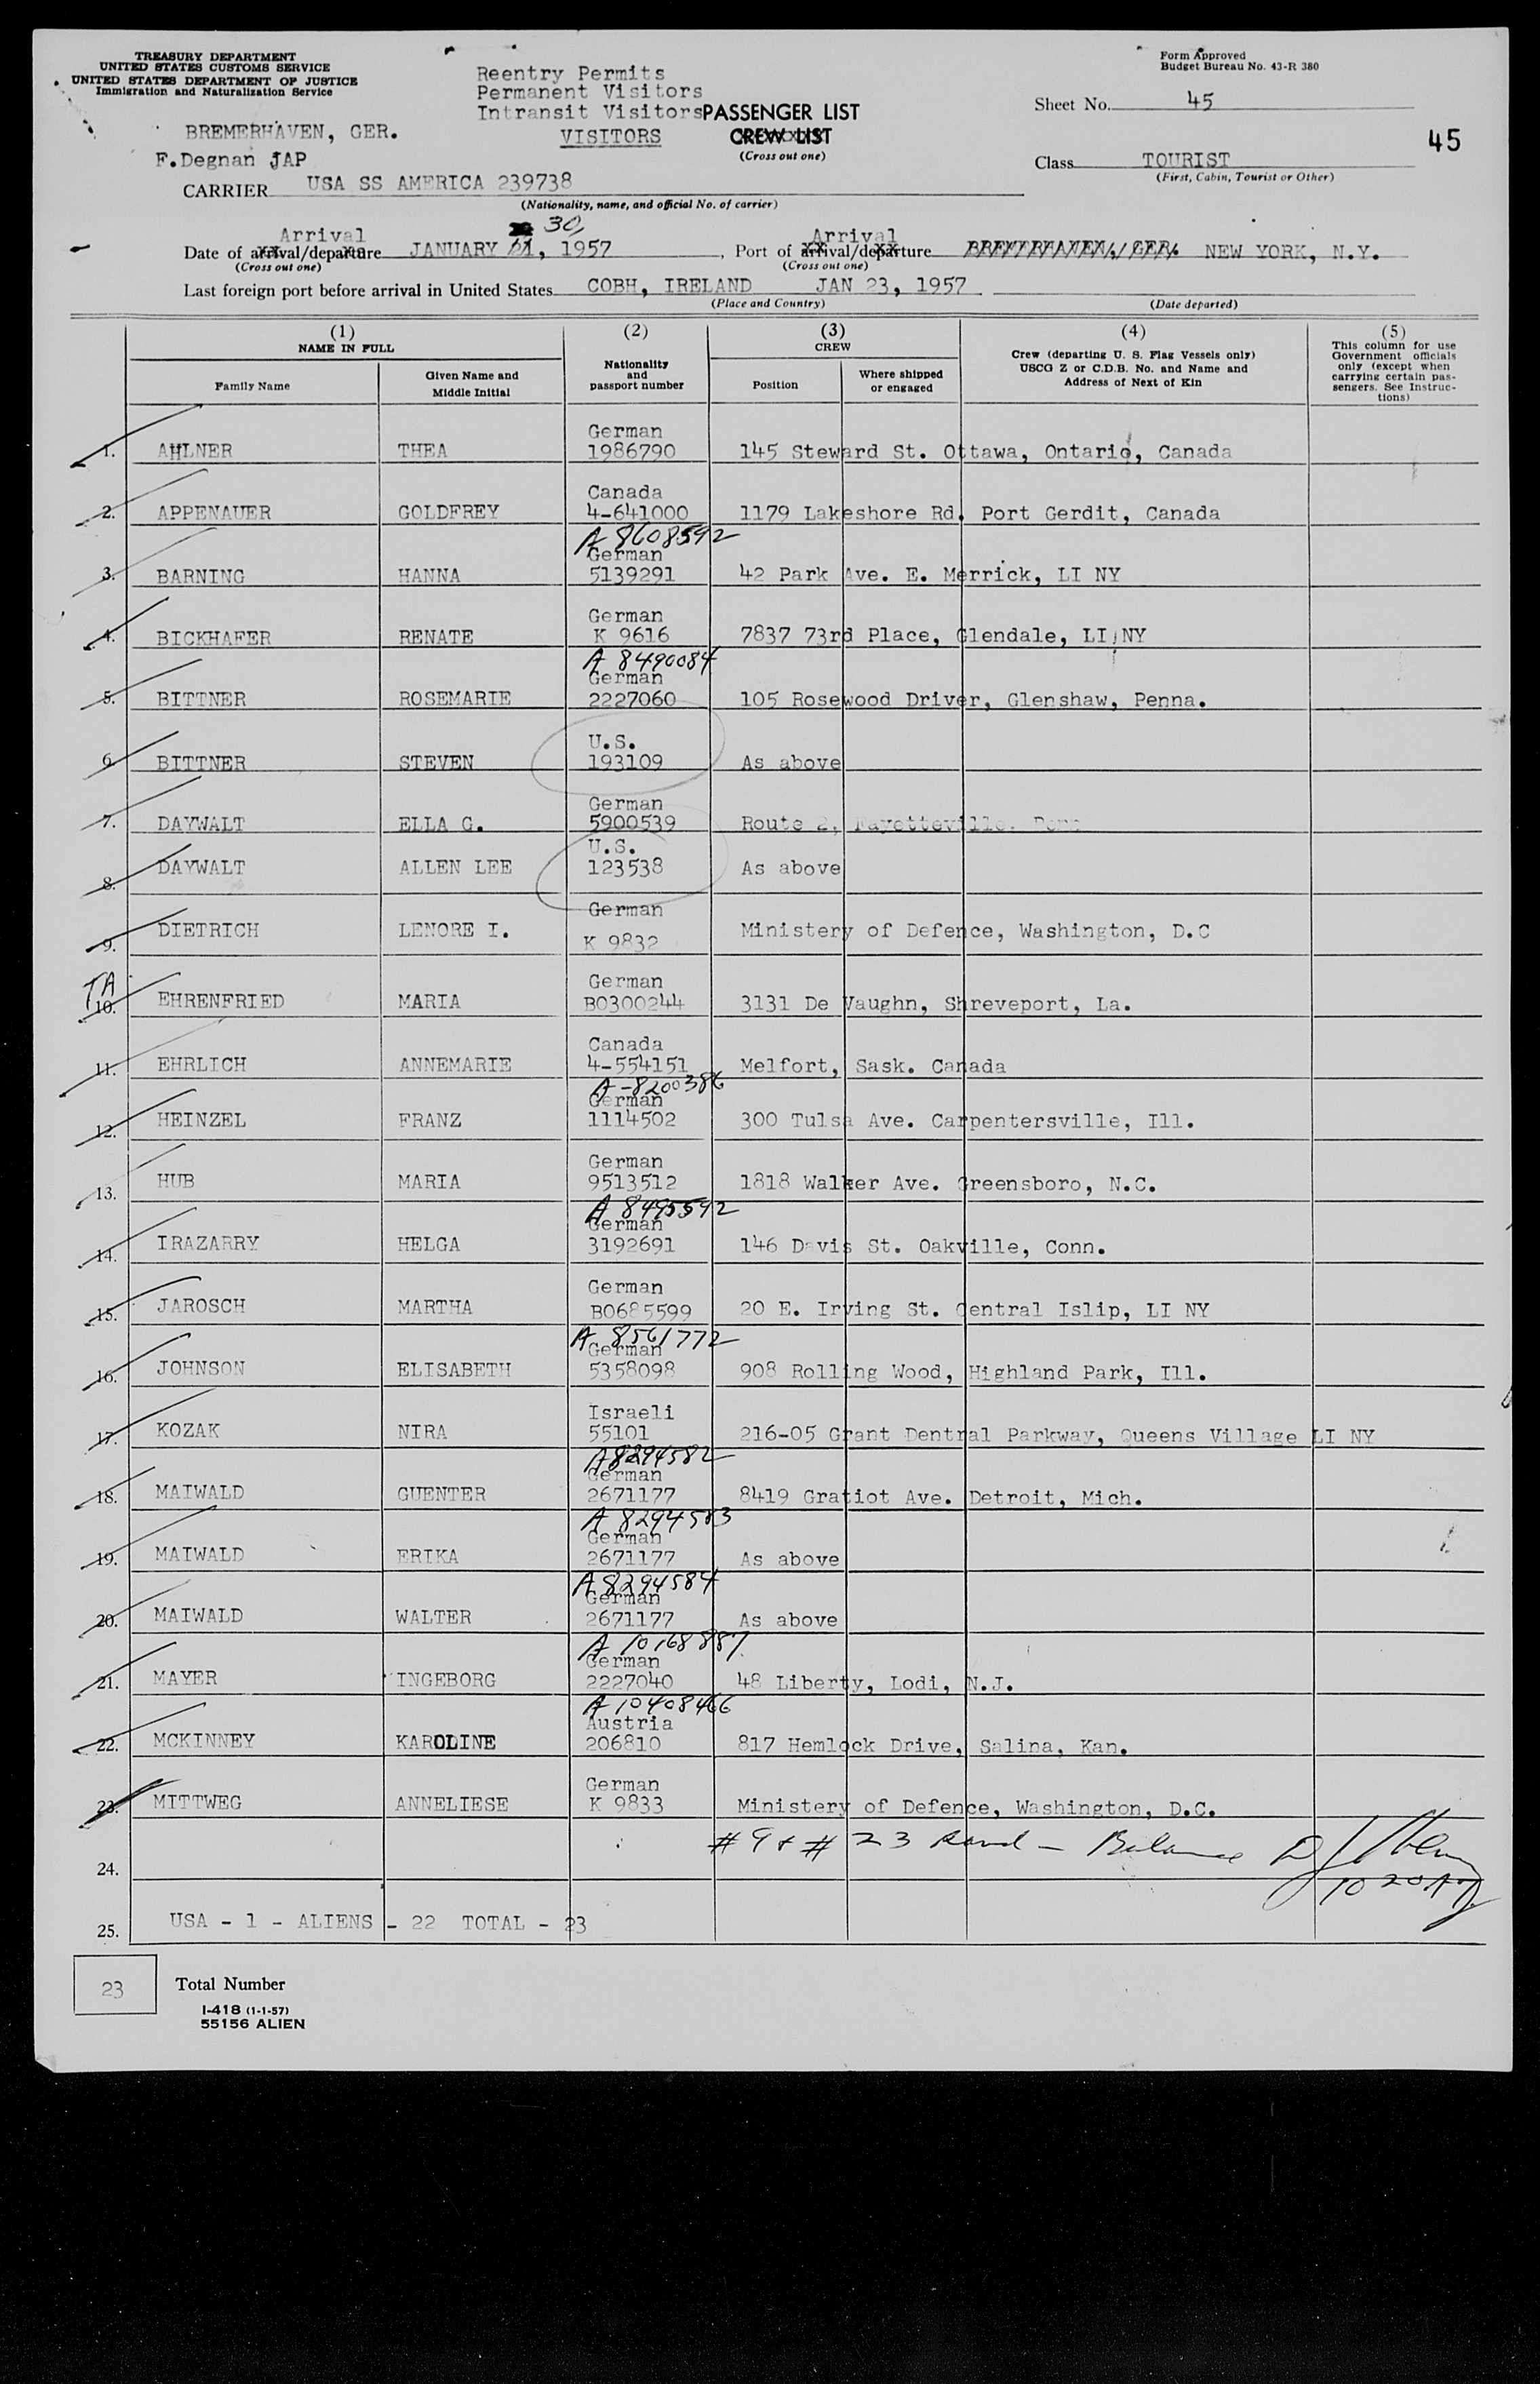 TREASURY DEPARTMENT
UNITED STATES CUSTOMS SERVICE
UNITED STATES DEPARTMENT OF JUSTICE
Immigration and Naturalization Service
Form Approved
Budget Bureau No. 43-R 380
Reentry Permits
Permanent Visitors
Intransit Visitors PASSENGER LIST
VISITORS CREW LIST
(Cross out one)
Sheet No. 45
45
BREMERHAVEN, GER.
F.Degnan JAP
Class TOURIST
(First, Cabin, Tourist or Other)
CARRIER USA SS AMERICA 239738
(Nationality, name, and official No. of carrier)
30,
Arrival Arrival
Date of arrival/departure JANUARY 21, 1957, Port of arrival/departure BREMERHAVEN, GER. NEW YORK, N.Y.
(Cross out one) (Cross out one)
Last foreign port before arrival in United States COBH, IRELAND JAN 23, 1957
(Place and Country) (Date departed)
(1) (2) (3) (4) (5)
NAME IN FULL
Family Name
Given Name and Middle Initial
Nationality and passport number
CREW
Position
Where shipped or engaged
Crew (departing U. S. Flag Vessels only)
USCG Z or C.D.B. No. and Name and
Address of Next of Kin
This column for use
Government officials
only (except when
carrying certain pas-
sengers. See Instruc-
tions)
German
1. AHLNER THEA 1986790 145 Steward St. Ottawa, Ontario, Canada
Canada
2. APPENAUER GOLDFREY 4-641000 1179 Lakeshore Rd. Port Gerdit, Canada
A 8608592
German
3. BARNING HANNA 5139291 42 Park Ave. E. Merrick, LI NY
German
4. BICKHAFER RENATE K 9616 7837 73rd Place, Glendale, LI NY
A 8490084
German
5. BITTNER ROSEMARIE 2227060 105 Rosewood Driver, Glenshaw, Penna.
U.S.
6. BITTNER STEVEN 193109 As above
German
7. DAYWALT ELLA G. 5900539 Route 2, Fayetteville, Penn
U.S.
8. DAYWALT ALLEN LEE 123538 As above
German
9. DIETRICH LENORE I. K 9832 Ministery of Defence, Washington, D.C
TA
German
10. EHRENFRIED MARIA B0300244 3131 De Vaughn, Shreveport, La.
Canada
11. EHRLICH ANNEMARIE 4-554151 Melfort, Sask. Canada
A-8200386
German
12. HEINZEL FRANZ 1114502 300 Tulsa Ave. Carpentersville, Ill.
German
13. HUB MARIA 9513512 1818 Walker Ave. Greensboro, N.C.
A 8495592
German
14. IRAZARRY HELGA 3192691 146 Davis St. Oakville, Conn.
German
15. JAROSCH MARTHA B0685599 20 E. Irving St. Central Islip, LI NY
A 8561772
German
16. JOHNSON ELISABETH 5358098 908 Rolling Wood, Highland Park, Ill.
Israeli
17. KOZAK NIRA 55101 216-05 Grant Dentral Parkway, Queens Village LI NY
A8294582
German
18. MAIWALD GUENTER 2671177 8419 Gratiot Ave. Detroit, Mich.
A 8294583
German
19. MAIWALD ERIKA 2671177 As above
A 8294584
German
20. MAIWALD WALTER 2671177 As above
A 10168887
German
21. MAYER INGEBORG 2227040 48 Liberty, Lodi, N.J.
A 10408466
Austria
22. MCKINNEY KAROLINE 206810 817 Hemlock Drive, Salina, Kan.
German
23. MITTWEG ANNELIESE K 9833 Ministery of Defence, Washington, D.C.
# 9 + # 23 - Balance
24.
10 20 A
25. USA - 1 - ALIENS - 22 TOTAL - 23
23 Total Number
I-418 (1-1-57)
55156 ALIEN